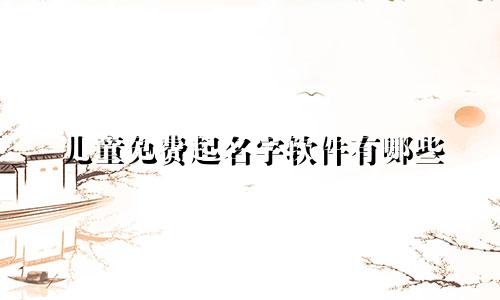 儿童免费起名字软件有哪些